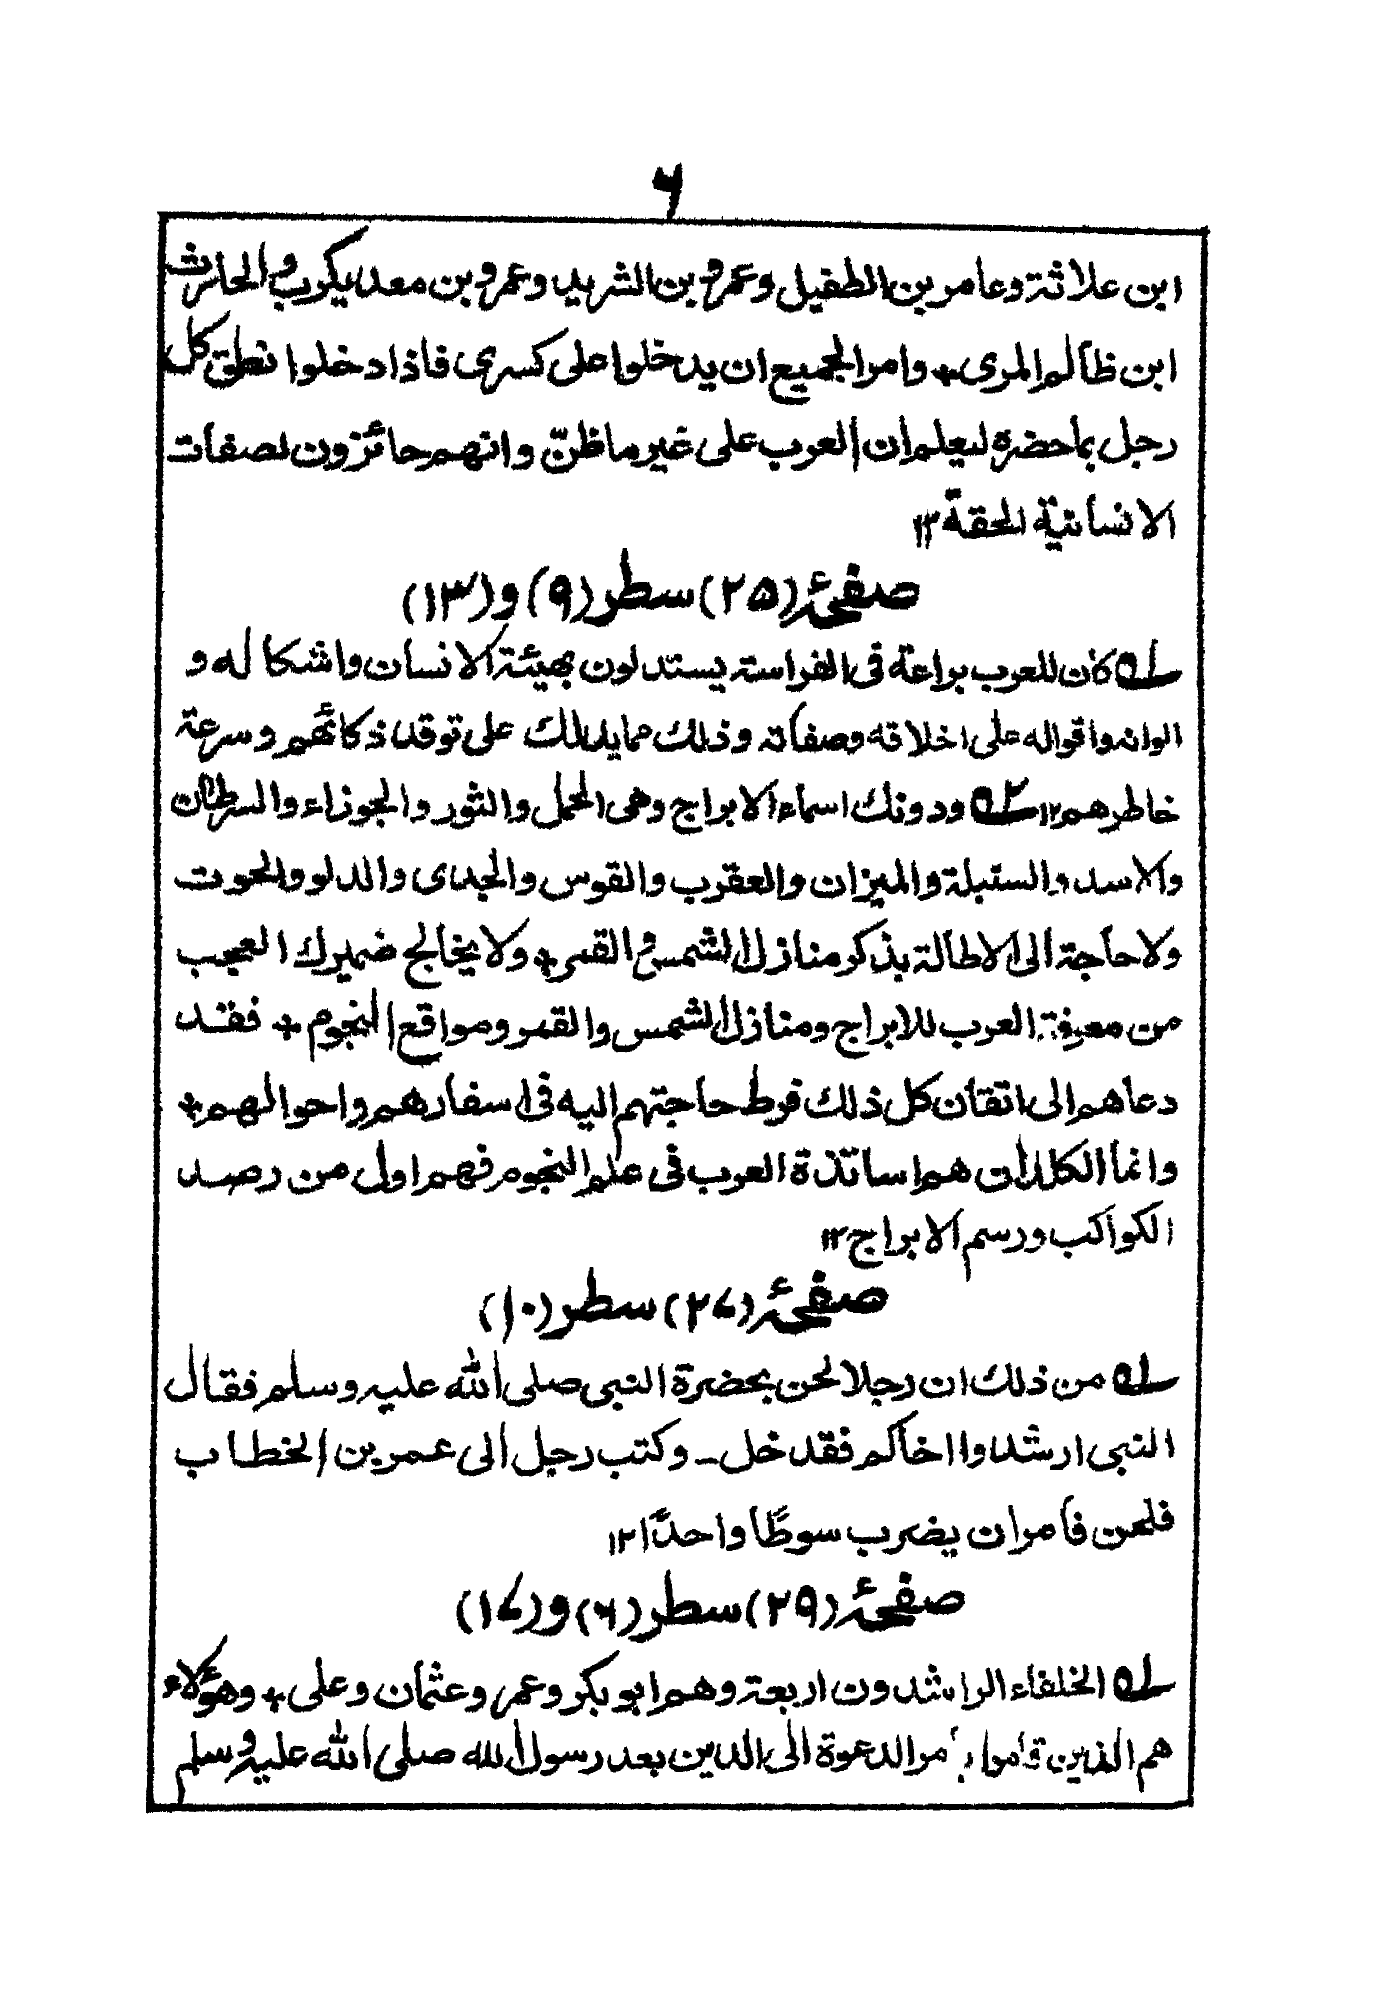 ۶
ابن علاثة وعامر بن الطفيل وعمرو بن الشريد وعمرو بن معديكرب والحارث
ابن ظالم المرى + وامر الجميع ان يدخلوا على كسرى فاذا دخلوا نطق كل
رجل بما حضره ليعلم ان العرب على غير ما ظنّ وانهم حائزون لصفات
الانسانية الحقة ۱۲
صفحۂ (۲۵) سطر (۹) و (۱۳)
۱ه كان للعرب براعة فى الفراسة يستدلون بهيئة الانسان واشكاله و
الوانه واقواله على اخلاقه وصفاته وذلك مما يدلك على توقد ذكائهم وسرعة
خاطرهم ۱۲ ۲ه ودونك اسماء الابراج وهى الحمل والثور والجوزاء والسرطان
والاسد والسنبلة والميزان والعقرب والقوس والجدى والدلو والحوت
ولا حاجة الى الاطالة بذكر منازل الشمس والقمر + ولا يخالج ضميرك العجب
من معرفة العرب للابراج ومنازل الشمس والقمر ومواقع النجوم + فقد
دعاهم الى اتقان كل ذلك فرط حاجتهم اليه فى اسفارهم واحوالهم +
وانما الكلدان هم اساتذة العرب فى علم النجوم فهم اول من رصد
الكواكب ورسم الابراج ۱۲
صفحۂ (۲۷) سطر (۱۰)
۱ه من ذلك ان رجلا لحن بحضرة النبى صلى الله عليه وسلم فقال
النبى ارشدوا اخاكم فقد ضل ـ وكتب رجل الى عمر بن الخطاب
فلحن فامر ان يضرب سوطًا واحدًا ۱۲
صفحۂ (۲۹) سطر (۶) و (۱۷)
۱ه الخلفاء الراشدون اربعة وهم ابو بكر وعمر وعثمان وعلى + وهؤلاء
هم الذين قاموا بامر الدعوة الى الدين بعد رسول الله صلى الله عليه وسلم